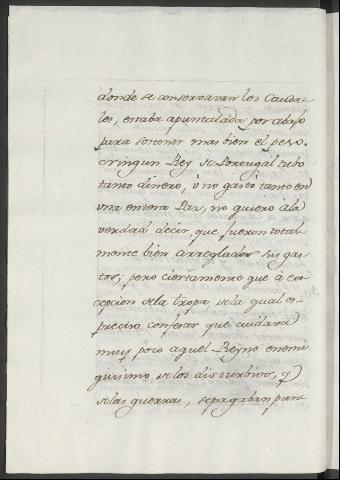 donde se conservavan los Cauda-
les, estaba apuntalada por abajo
para sostener mas bien el peso.
Ningun Rey de Portugal tubo
tanto dinero, ò no gastò tanto en
una entera Paz, no quiero à la
verdad decir, que fueron total-
mente bien arreglados sus gas-
tos; pero ciertamente que à ex-
cepcion de la tropa de la qual es
preciso confesar que cuidava
muy poco aquel Reyno enemi-
guisimo de los disturbios, y
de las guerras, se pagaban punt